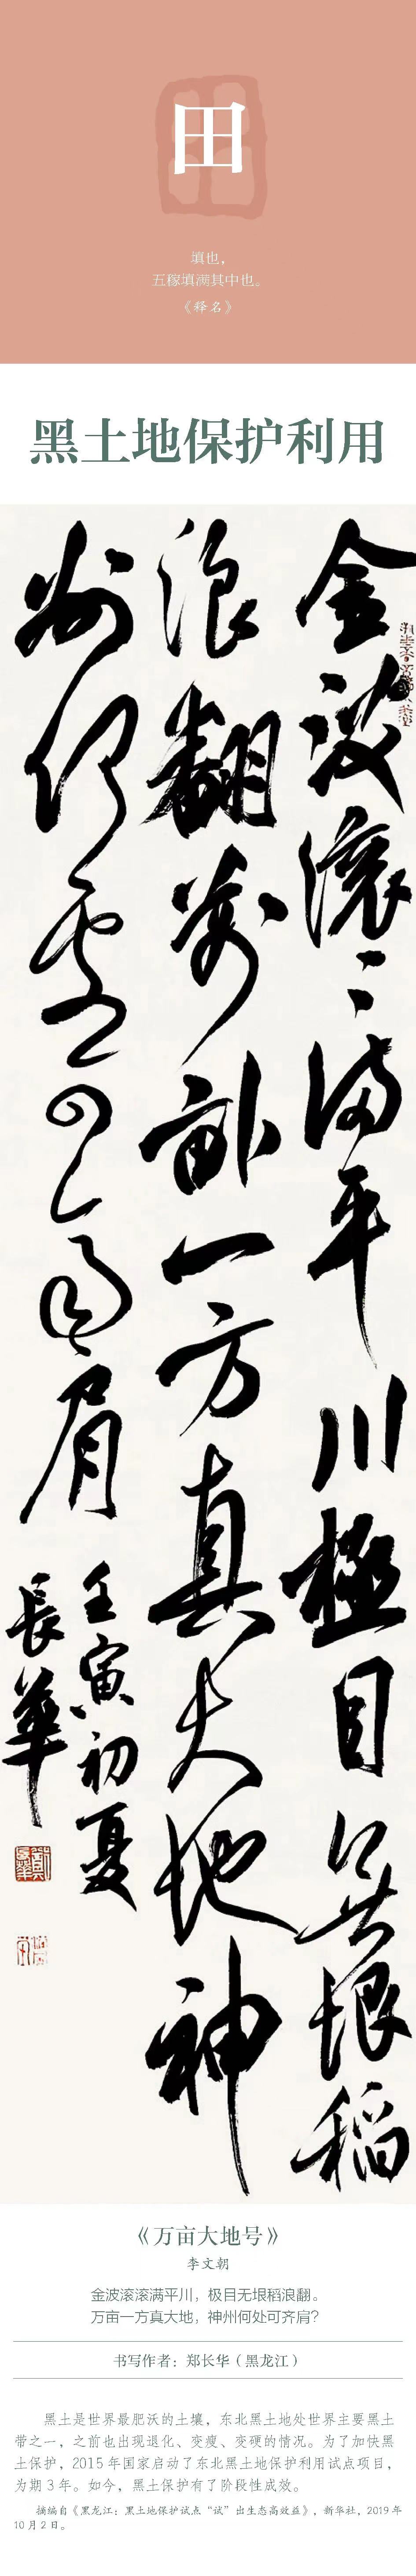 田
填也，
五稼填满其中也。
《释名》
黑土地保护利用
金波滚滚满平川極目無垠稻
浪翻萬畝一方真大地神
州何處可齊肩
壬寅初夏
長華
《万亩大地号》
李文朝
金波滚滚满平川，极目无垠稻浪翻。
万亩一方真大地，神州何处可齐肩？
书写作者：郑长华（黑龙江）
黑土是世界最肥沃的土壤，东北黑土地处世界主要黑土
带之一，之前也出现退化、变瘦、变硬的情况。为了加快黑
土保护，2015 年国家启动了东北黑土地保护利用试点项目，
为期 3 年。如今，黑土保护有了阶段性成效。
摘编自《黑龙江：黑土地保护试点“试”出生态高效益》，新华社，2019 年
10 月 2 日。